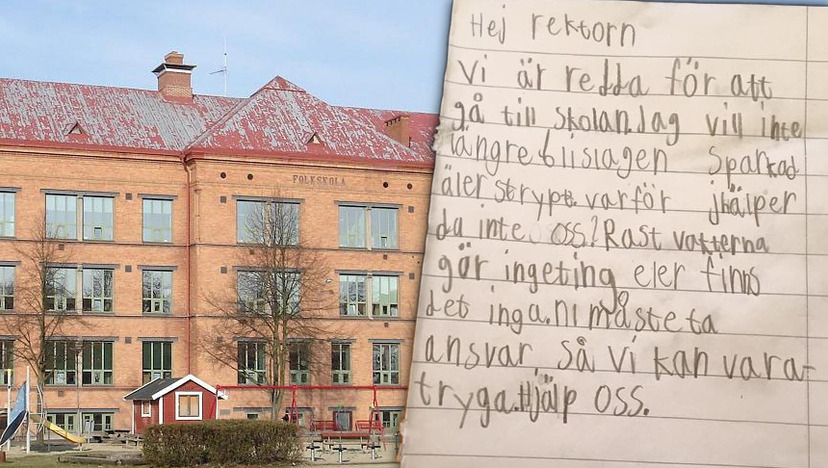 FOLKSKOLA
Hej rektorn
Vi är redda för att
gå till skolan.Jag vill inte
längre blislagen sparkad
äler strypt.varför jhälper
du inte oss?Rast vatterna
gör ingeting eler finns
det inga.ni måste ta
ansvar så vi kan vara
tryga.Hjälp oss.